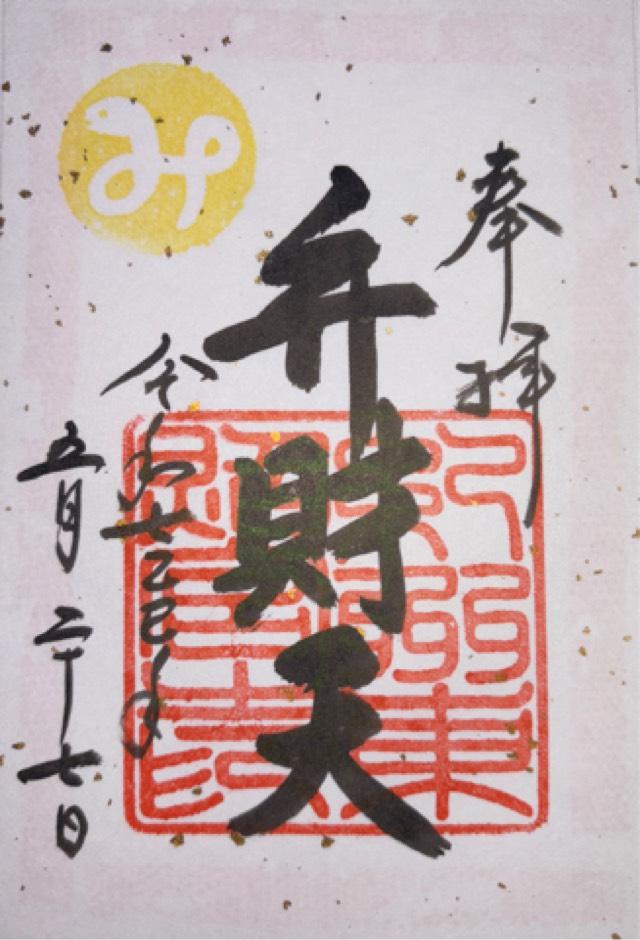 奉拝
弁財天
令和七乙巳年
五月二十七日
み